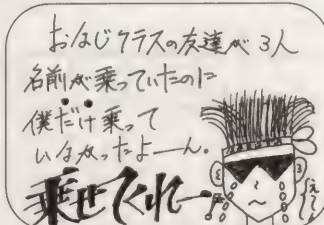 おなじクラスの友達が3人
名前が乗っていたのに
僕だけ乗って
いなかったよーん。
乗せてくれー
えーん